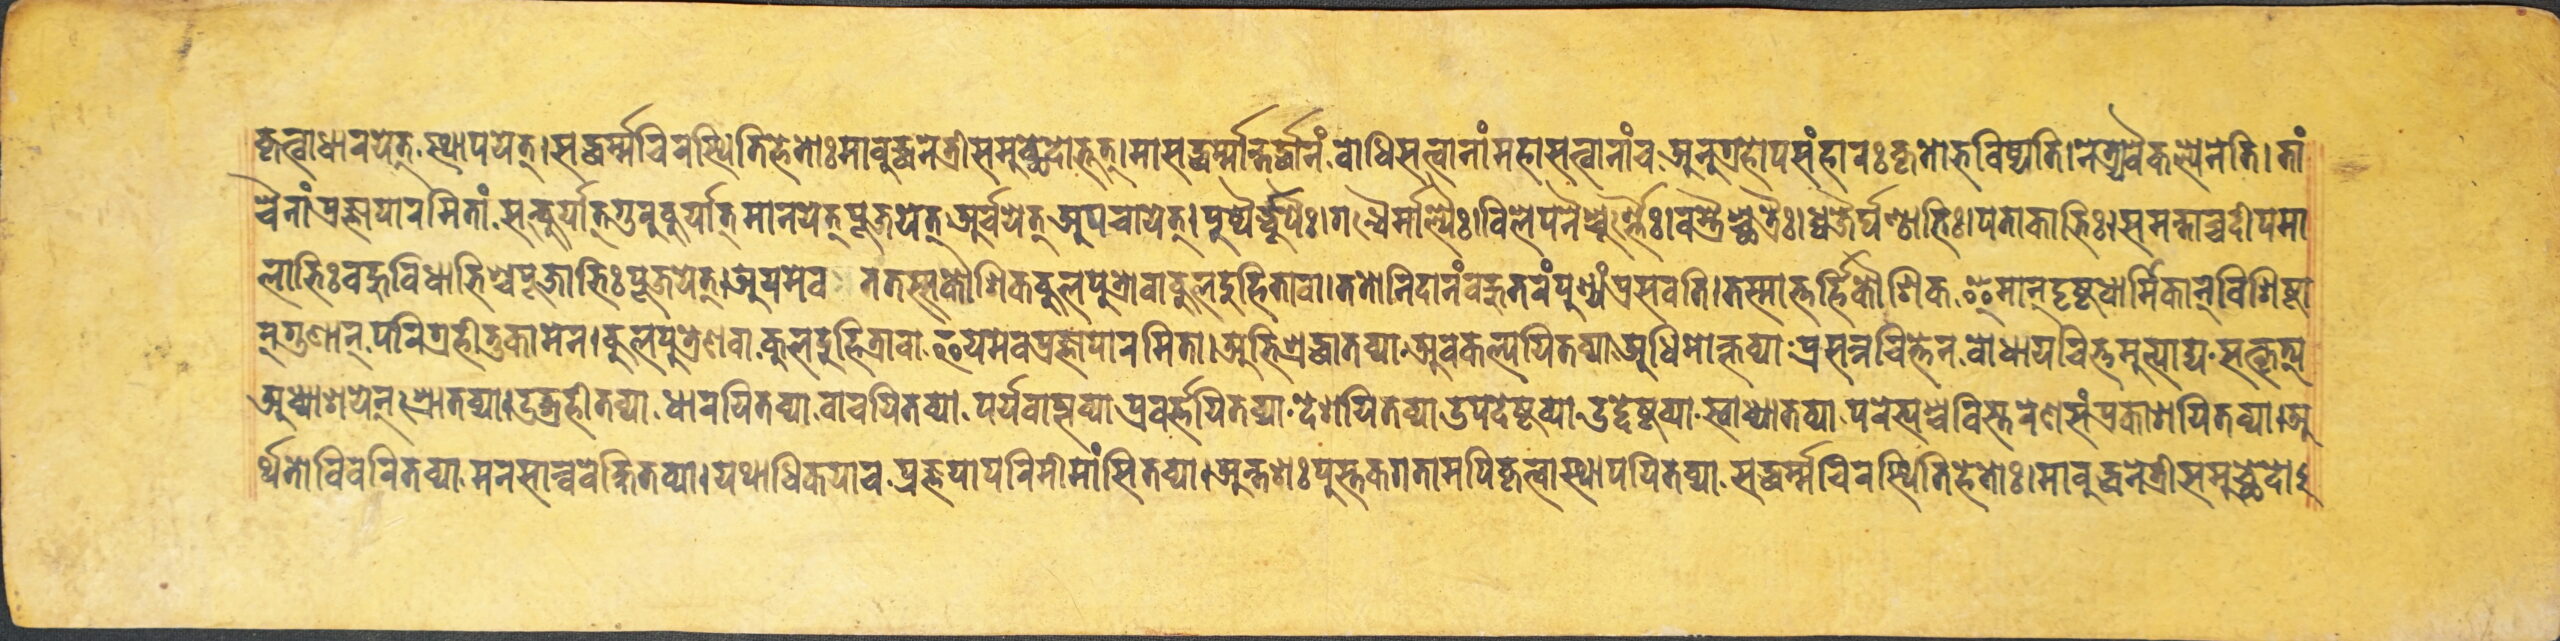 कृत्वा धारयेत् स्थापयेत्। सद्धर्म्मचिरस्थितिहेतोः मा बुद्धनेत्रीसमुच्छेदो भूत्। मा सद्धर्म्मान्तर्द्धानं बोधिसत्वानां महासत्वानां च अनुग्रहोपसंहारः कृतो भविष्यति। नेत्र्यवैकल्येनेति। तां
चैनां प्रज्ञापारमितां सत्कुर्यात् गुरुकुर्यात् मानयेत् पूजयेत् अर्चयेत् अपचायेत्। पुष्पैर्धूपैः। गन्धैर्माल्यैः। विलेपनैश्चूर्ण्णैः। वस्त्रैश्छत्रैः। ध्वजैर्घण्ठाभिः। पताकाभिः। समन्ताच्चदीपमा
लाभिः बहुविधाभिश्च पूजाभिः पूजयेत्। अयमेव ततस्स कौशिक कुलपुत्रो वा कुलदुहिता वा। ततो निदानं बहुतरं पुण्यं प्रसवति। तस्मात्तर्हि कौशिक इमान् दृष्टधार्मिकान् विशिष्टा
न् गुणान् परिग्रहीतुकामेन। कुलपुत्रेण वा कुलदुहित्रा वा इयमेव प्रज्ञापारमिता। अभिश्रद्धातव्या अवकल्पयितव्या अधिमोक्तव्या प्रसन्नचित्तेन बोधाय चित्तमुत्पाद्य सत्कृत्य
अध्याशयेन श्रोतव्या। उद्ग्रहीतव्या धारयितव्या वाचयितव्या पर्यवाप्तव्या प्रवर्त्तयितव्या देशयितव्या उपदेष्टव्या उद्देष्टव्या स्वाध्यातव्या परेभ्यश्च विस्तरेण संप्रकाशयितव्या। अ
र्थतो विवरितव्या मनसान्ववेक्षितव्या। यथाधिकया च प्रज्ञया परिमीमांसितव्या। अन्तशः पुस्तकगतामपि कृत्वा स्थापयितव्या सद्धर्म्मचिरस्थितिहेतोः। मा बुद्धनेत्रीसमुच्छेदो